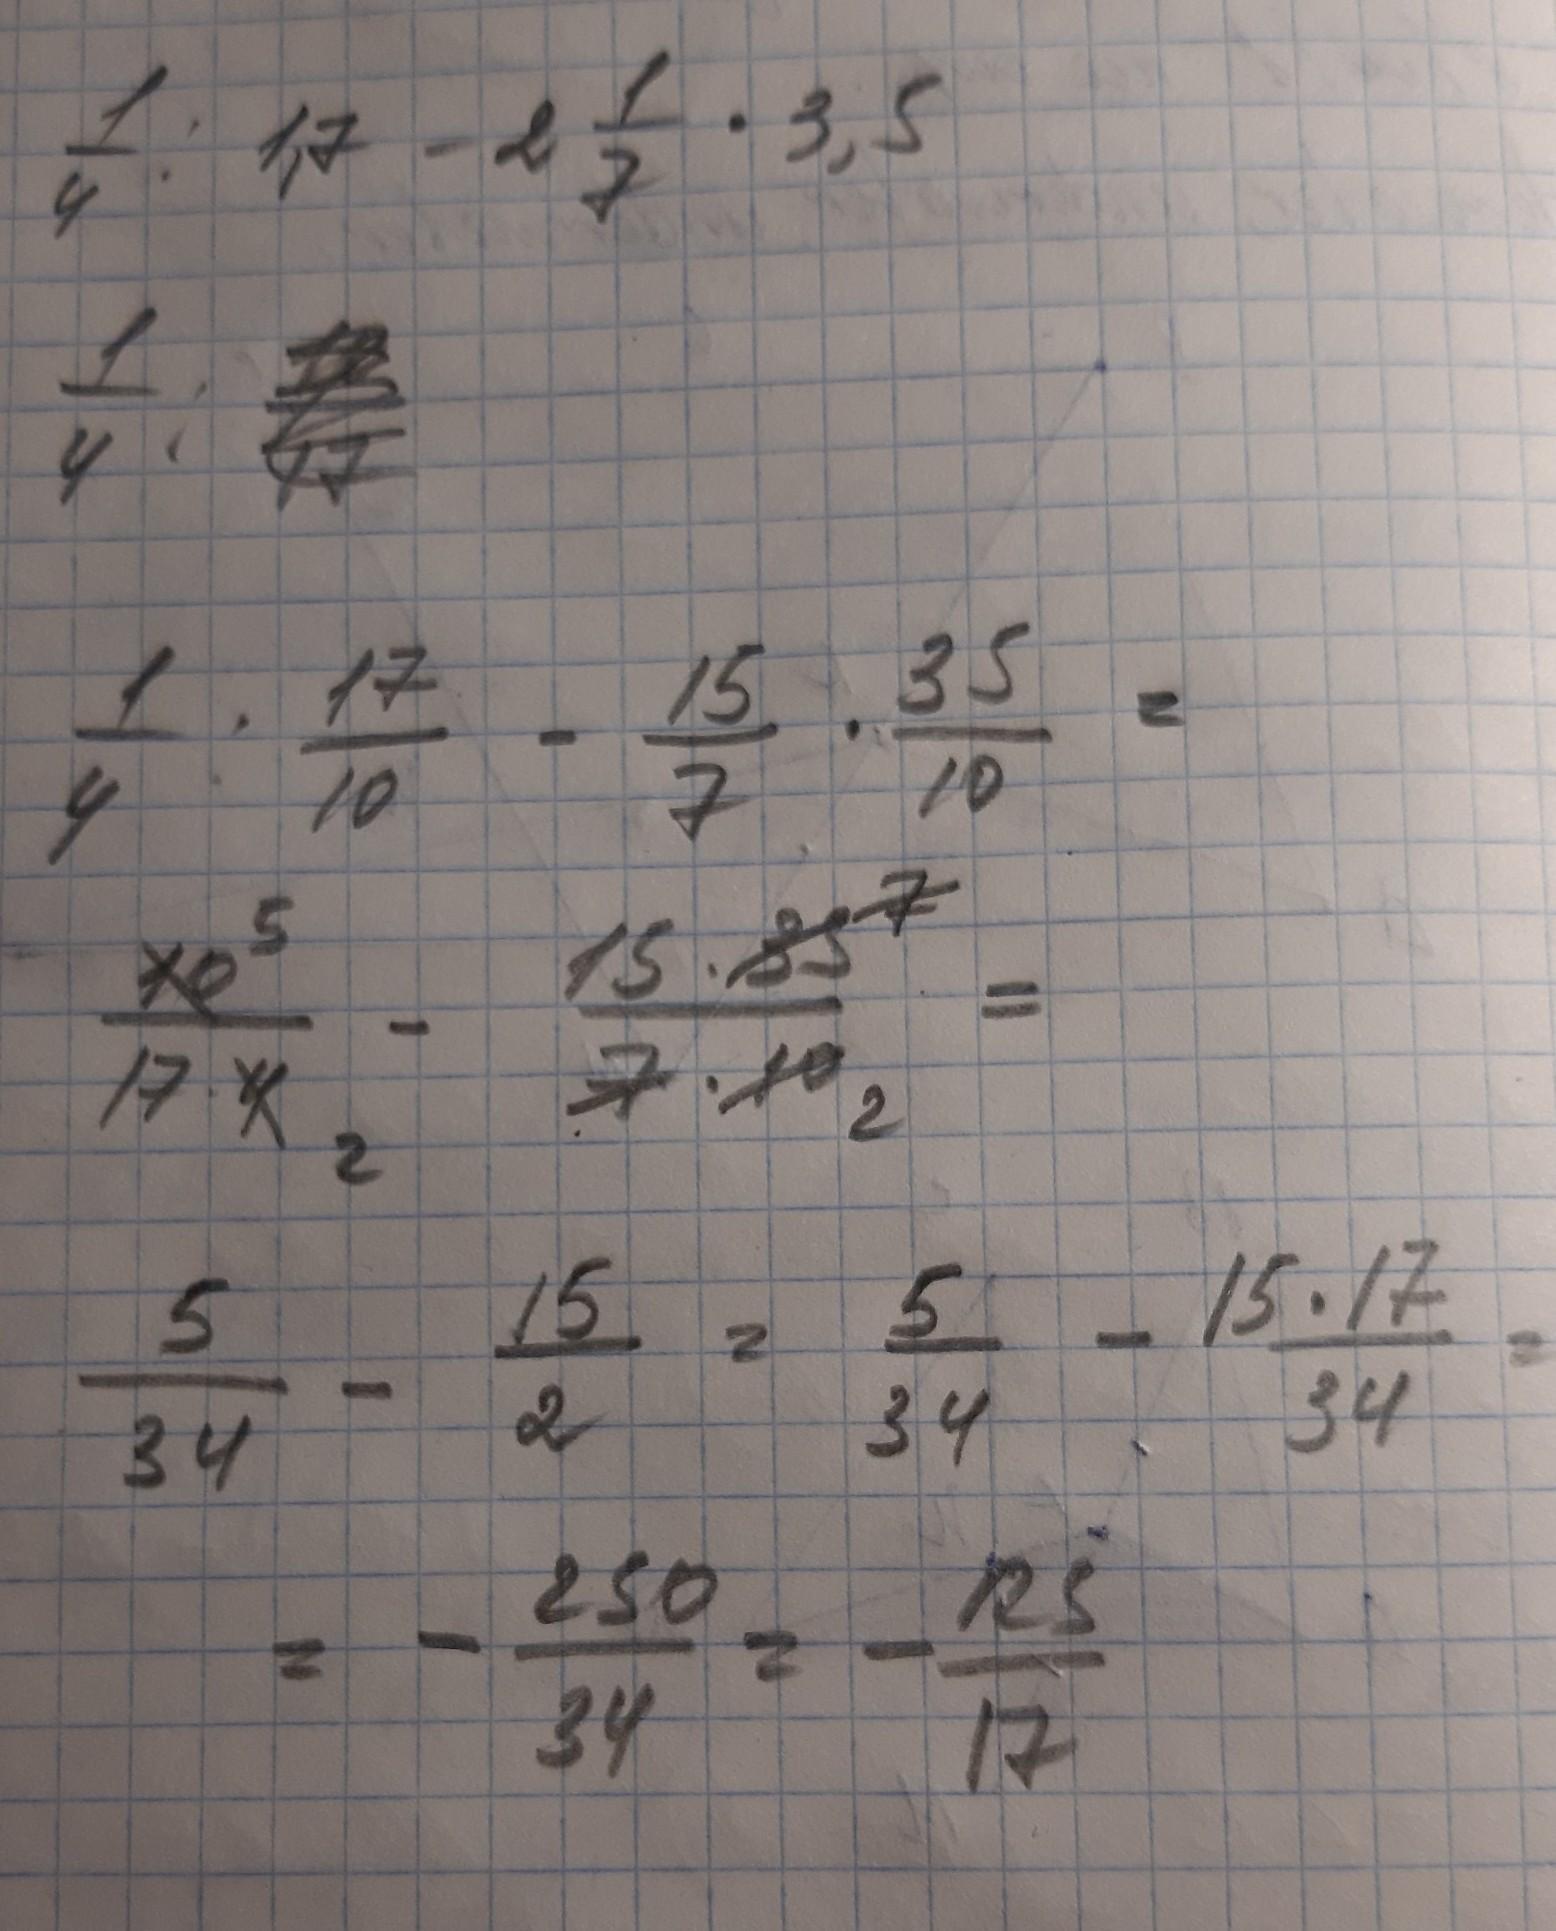 1/4 : 1,7 - 2 1/7 · 3,5
1/4 :
1/4 : 17/10 - 15/7 · 35/10 =
10 5/17 · 4 2 - 15 · 35 7/7 · 10 2 =
5/34 - 15/2 = 5/34 - 15 · 17/34 =
= - 250/34 = - 125/17